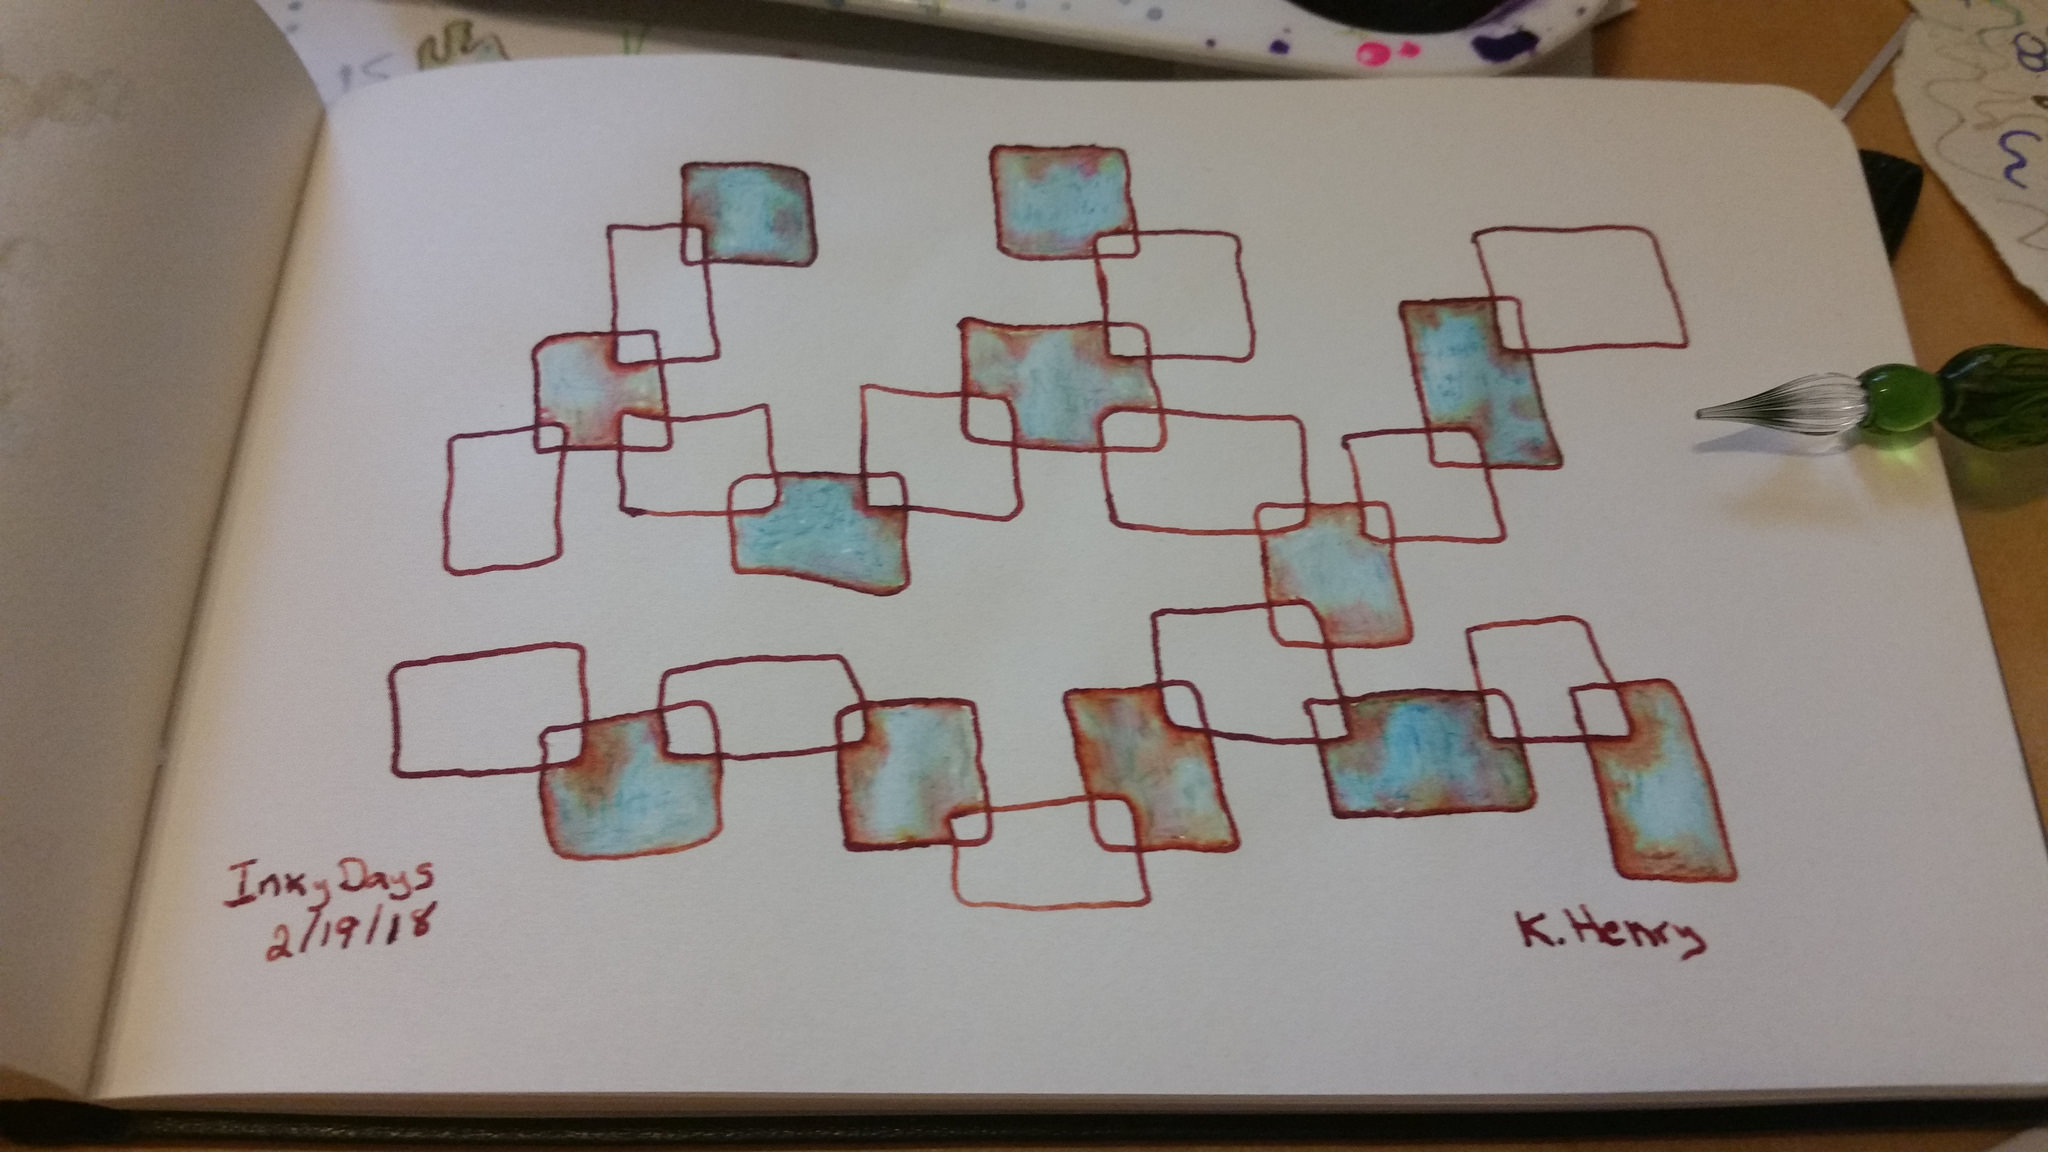 Inky Days
2/19/18
K. Henry